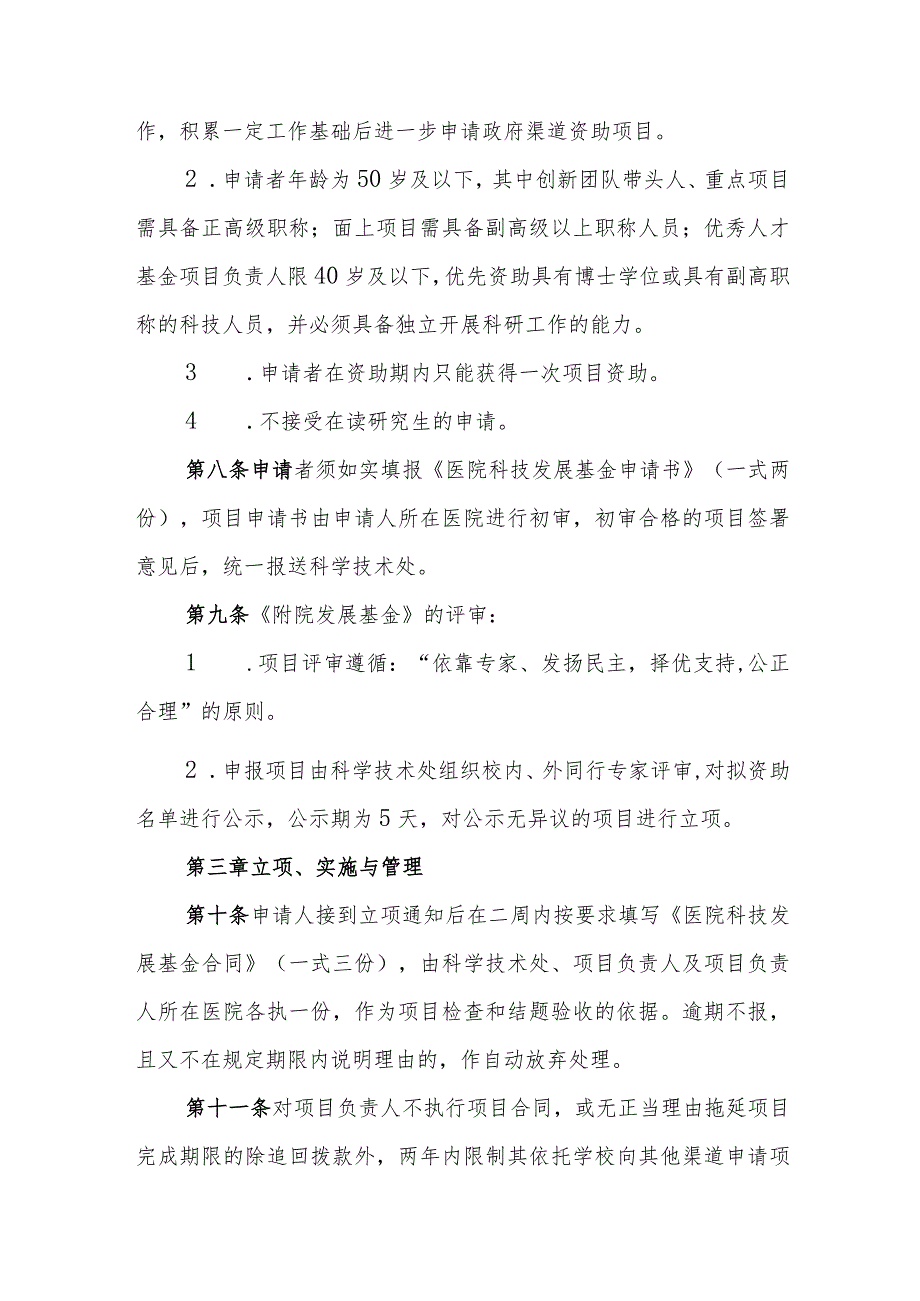 作，积累一定工作基础后进一步申请政府渠道资助项目。
2．申请者年龄为50岁及以下，其中创新团队带头人、重点项目
需具备正高级职称；面上项目需具备副高级以上职称人员；优秀人才
基金项目负责人限40岁及以下，优先资助具有博士学位或具有副高职
称的科技人员，并必须具备独立开展科研工作的能力。
3 ．申请者在资助期内只能获得一次项目资助。
4 ．不接受在读研究生的申请。
第八条申请者须如实填报《医院科技发展基金申请书》（一式两
份），项目申请书由申请人所在医院进行初审，初审合格的项目签署
意见后，统一报送科学技术处。
第九条《附院发展基金》的评审：
1 ．项目评审遵循：“依靠专家、发扬民主，择优支持,公正
合理”的原则。
2．申报项目由科学技术处组织校内、外同行专家评审,对拟资助
名单进行公示，公示期为5天，对公示无异议的项目进行立项。
第三章立项、实施与管理
第十条申请人接到立项通知后在二周内按要求填写《医院科技发
展基金合同》（一式三份），由科学技术处、项目负责人及项目负责
人所在医院各执一份，作为项目检查和结题验收的依据。逾期不报，
且又不在规定期限内说明理由的，作自动放弃处理。
第十一条对项目负责人不执行项目合同，或无正当理由拖延项目
完成期限的除追回拨款外，两年内限制其依托学校向其他渠道申请项